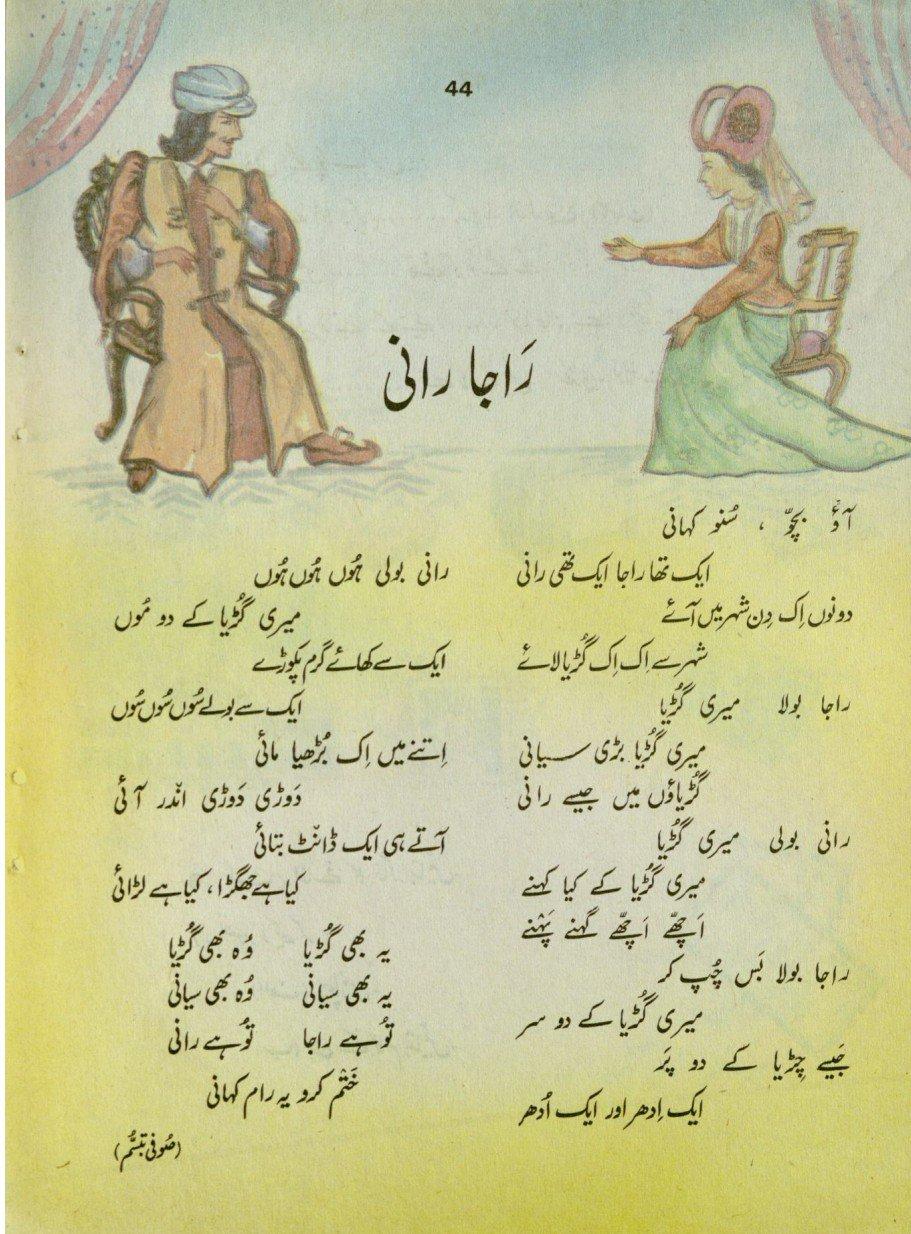 44
رَاجا رانی
آؤ بچّو ، سُنو کہانی
ایک تھا راجا ایک تھی رانی
دونوں اِک دِن شہر میں آئے
شہر سے اِک اِک گُڑیا لائے
راجا بولا میری گُڑیا
میری گُڑیا بڑی سیانی
گُڑیاؤں میں جیسے رانی
رانی بولی میری گُڑیا
میری گُڑیا کے کیا کہنے
اَچھّے اَچھّے گہنے پَہنے
راجا بولا بَس چُپ کر
میری گُڑیا کے دو سر
جَیسے چِڑیا کے دو پَر
ایک اِدھر اور ایک اُدھر
رانی بولی ہُوں ہُوں ہُوں
میری گُڑیا کے دو مُوں
ایک سے کھائے گرم پکوڑے
ایک سے بولے سُوں سُوں سُوں
اِتنے میں اِک بُڑھیا مائی
دَوڑی دَوڑی اندر آئی
آتے ہی ایک ڈانٹ بتائی
کیا ہے جھگڑا، کیا ہے لڑائی
یہ بھی گُڑیا وُہ بھی گُڑیا
یہ بھی سیانی وُہ بھی سیانی
تُو ہے راجا تُو ہے رانی
خَتْم کرو یہ رام کہانی
(صُوفی تبسُّم)